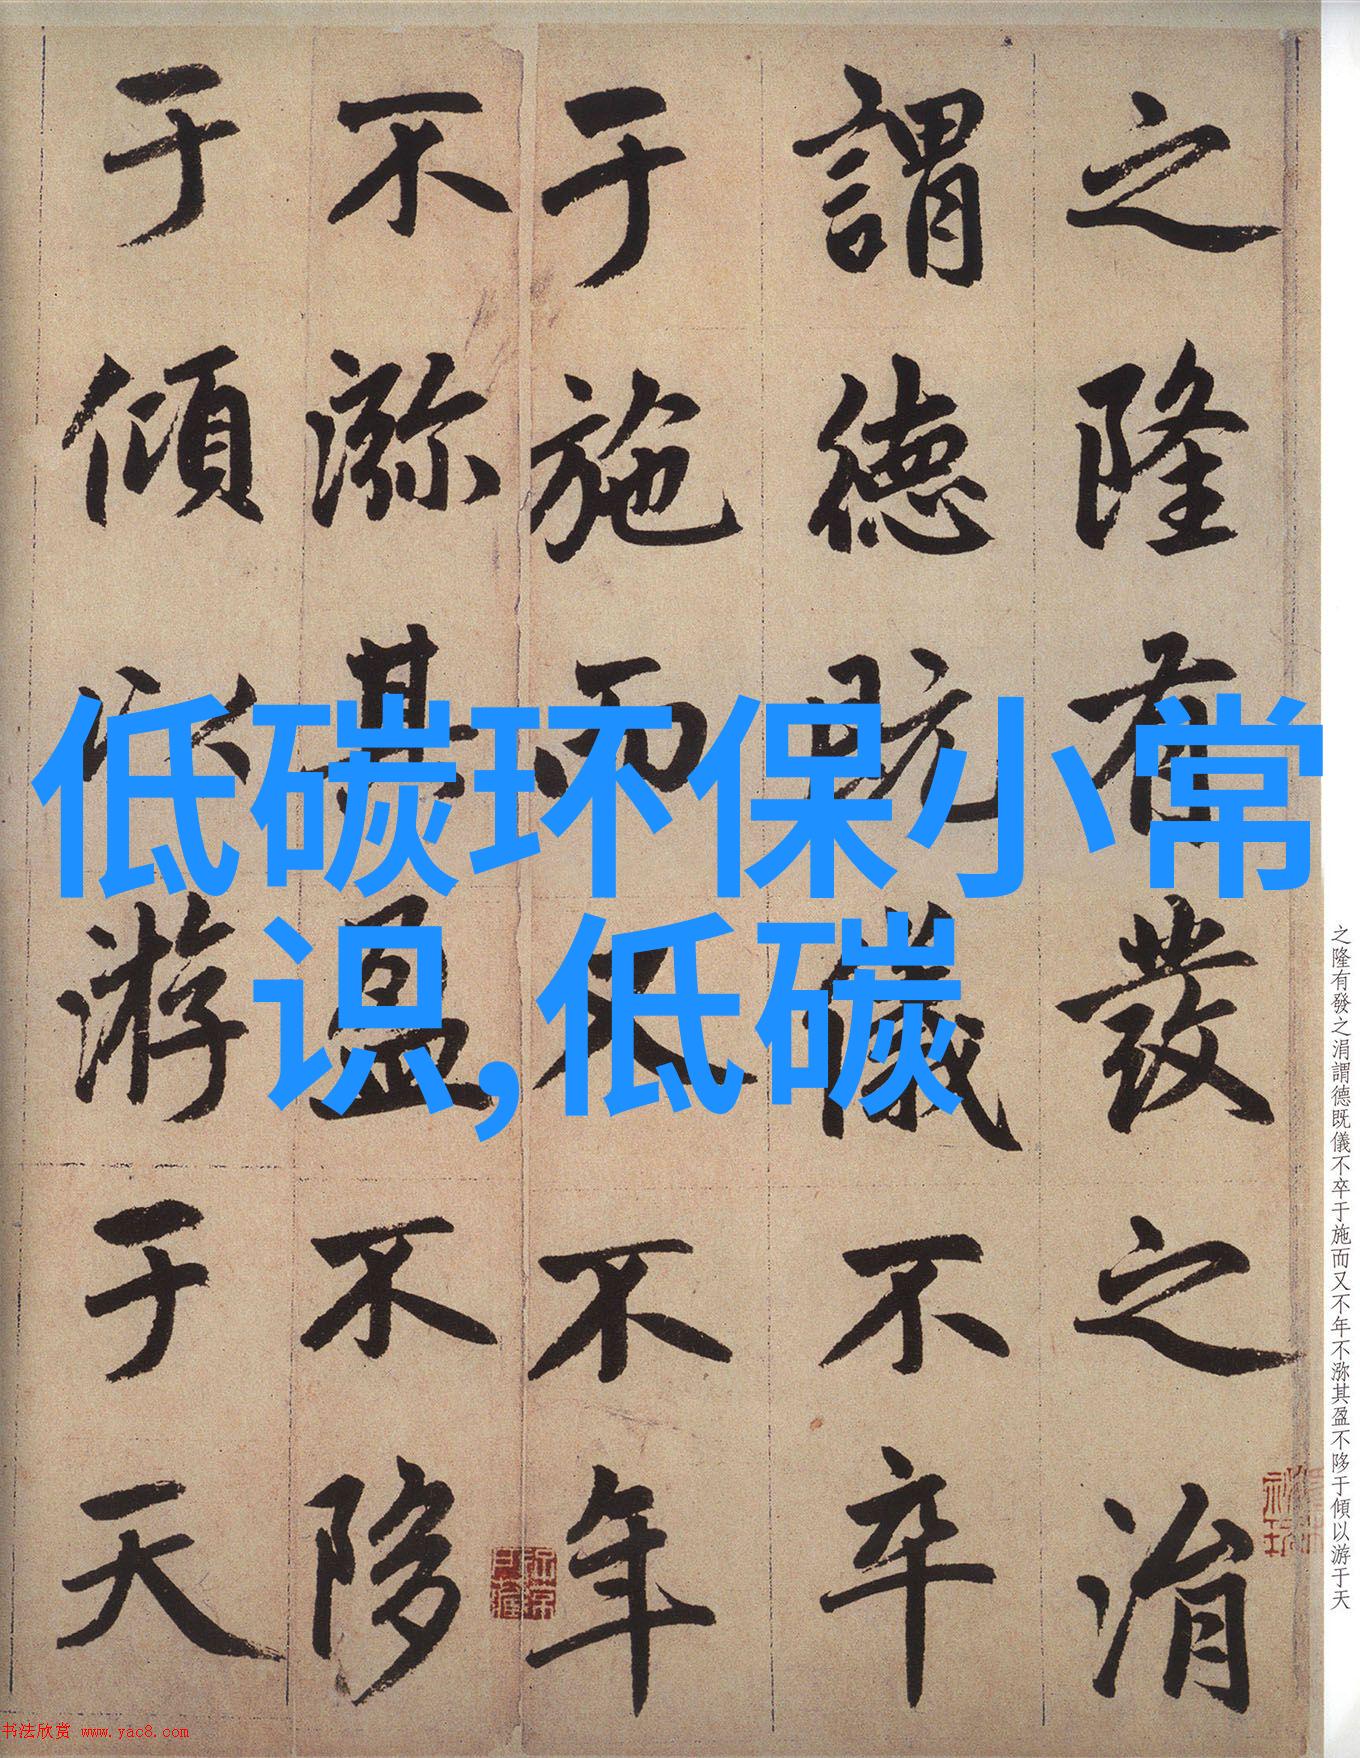 低碳环保小常
识,低碳
之隆有發之涓
謂德既儀不卒
于施而又不年
不㳽其盈不陊
于傾以游于天
之隆有發之涓謂德既儀不卒于施而又不年不㳽其盈不陊于傾以游于天
书法欣赏 www.yac8.com